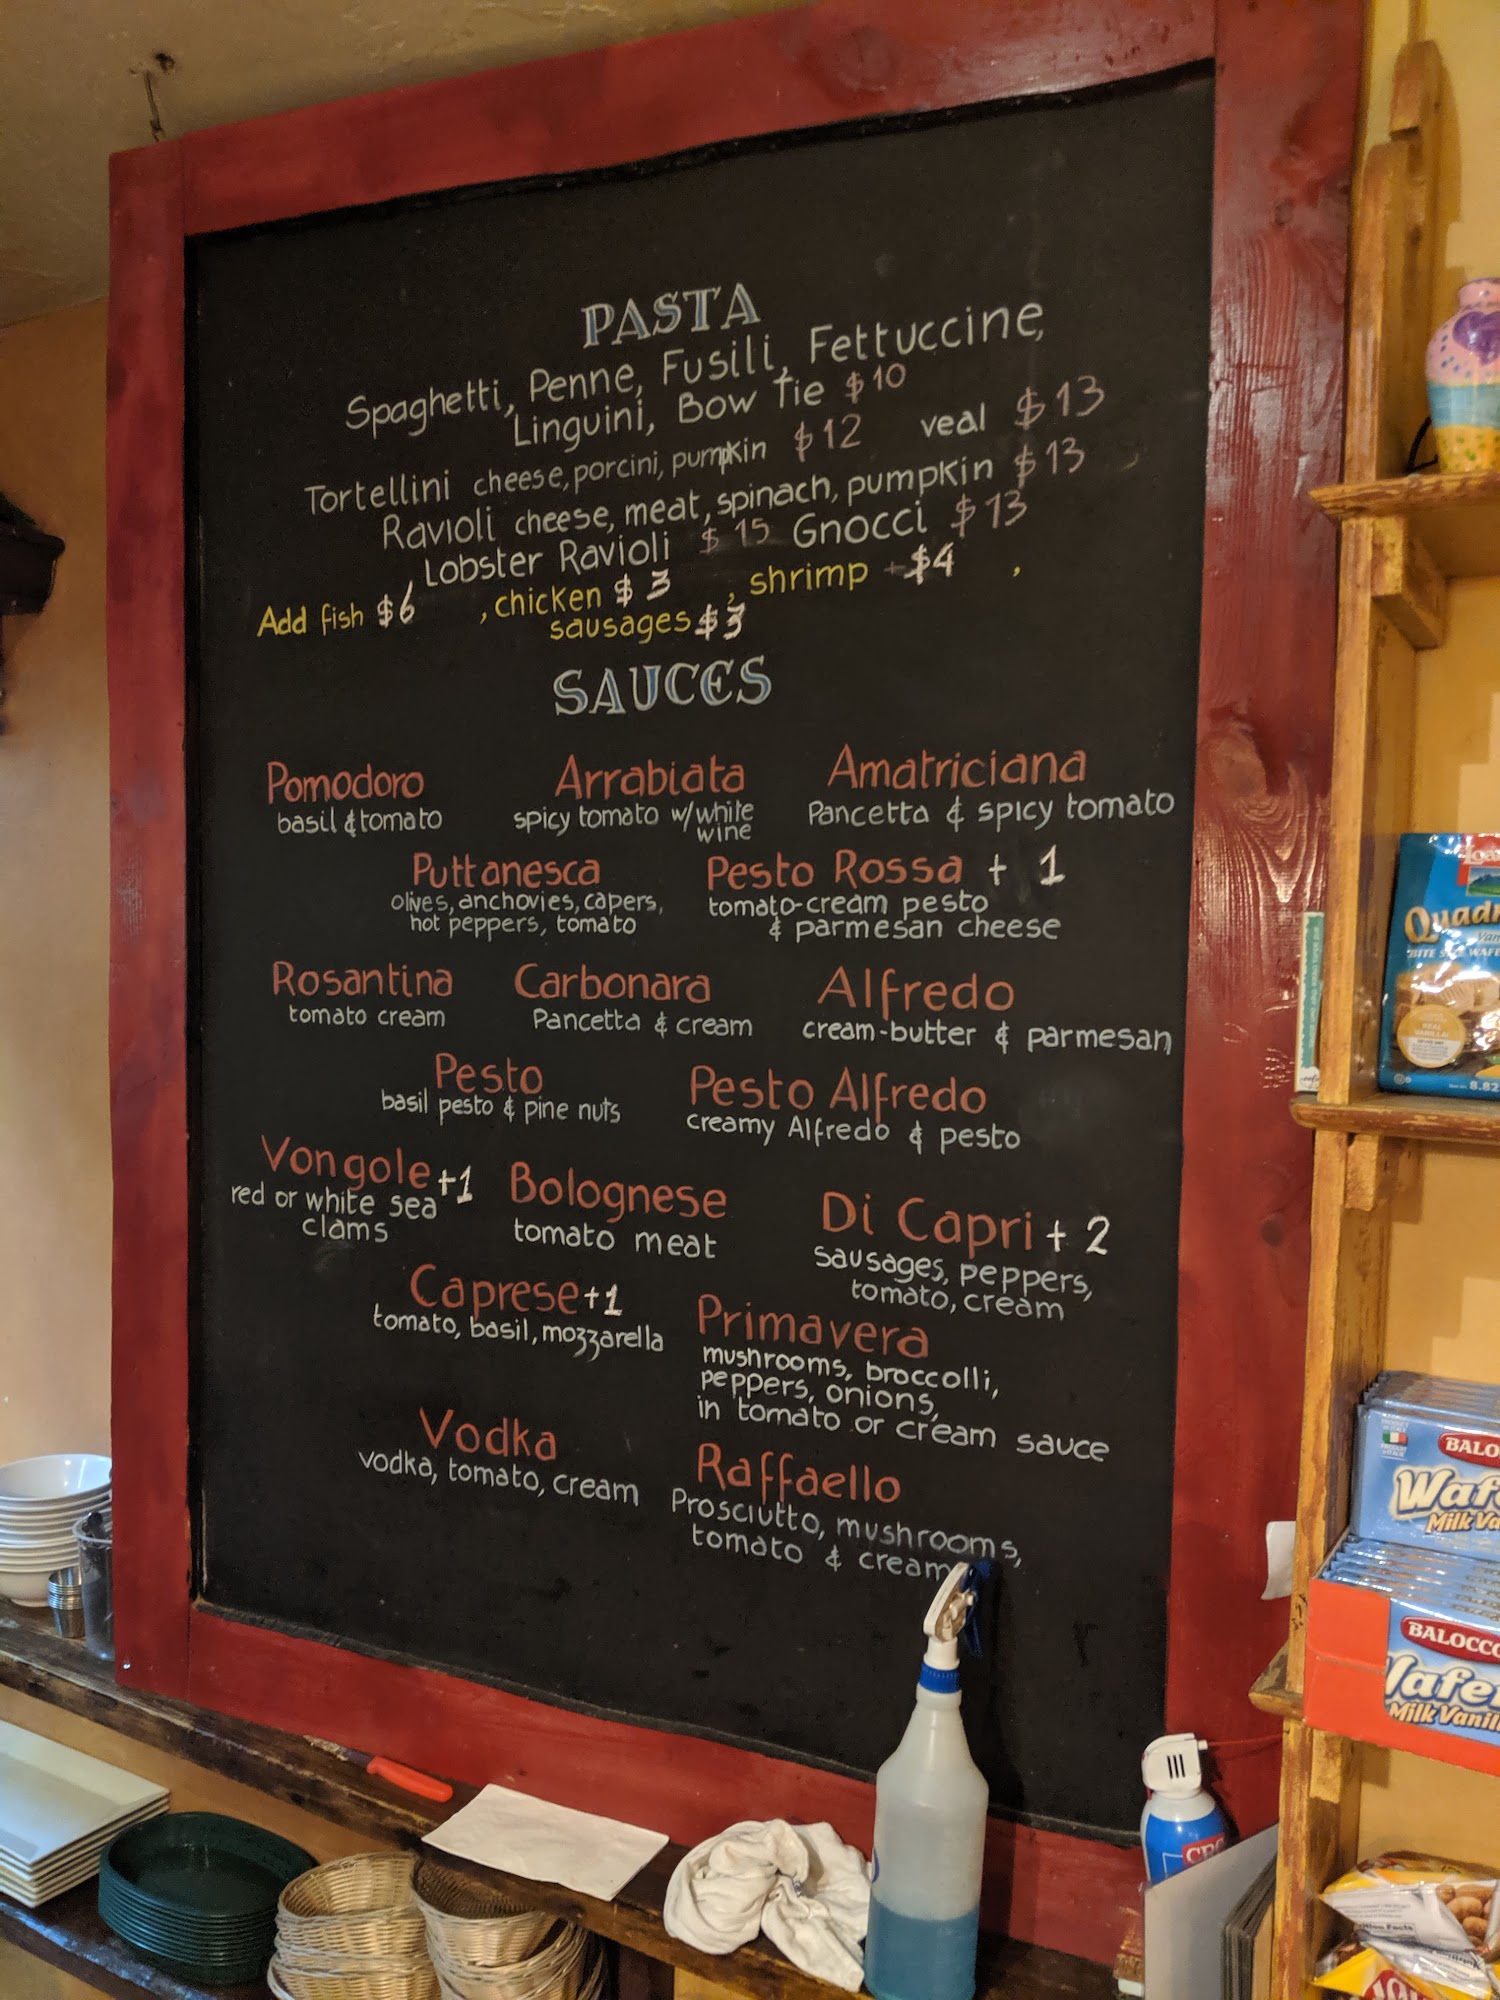 PASTA
Spaghetti, Penne, Fusili, Fettuccine,
Linguini, Bow Tie $10
Tortellini cheese, porcini, pumpkin $12 veal $13
Ravioli cheese, meat, spinach, pumpkin $13
Lobster Ravioli $15 Gnocci $13
Add fish $6 , chicken $3 , shrimp $4 ,
sausages $3
SAUCES
Pomodoro Arrabiata Amatriciana
basil & tomato spicy tomato w/white Pancetta & spicy tomato
wine
Puttanesca Pesto Rossa + 1
olives, anchovies, capers, tomato-cream pesto
hot peppers, tomato & parmesan cheese
Rosantina Carbonara Alfredo
tomato cream Pancetta & cream cream-butter & parmesan
Pesto Pesto Alfredo
basil pesto & pine nuts creamy Alfredo & pesto
Vongole +1 Bolognese Di Capri + 2
red or white sea tomato meat sausages, peppers,
clams tomato, cream
Caprese +1 Primavera
tomato, basil, mozzarella mushrooms, broccolli,
peppers, onions,
in tomato or cream sauce
Vodka Raffaello
vodka, tomato, cream Prosciutto, mushrooms,
tomato & cream
Quadr
BITE
8.82
BALO
Waf
Milk Va
BALOCCO
Wafe
Milk Vanil